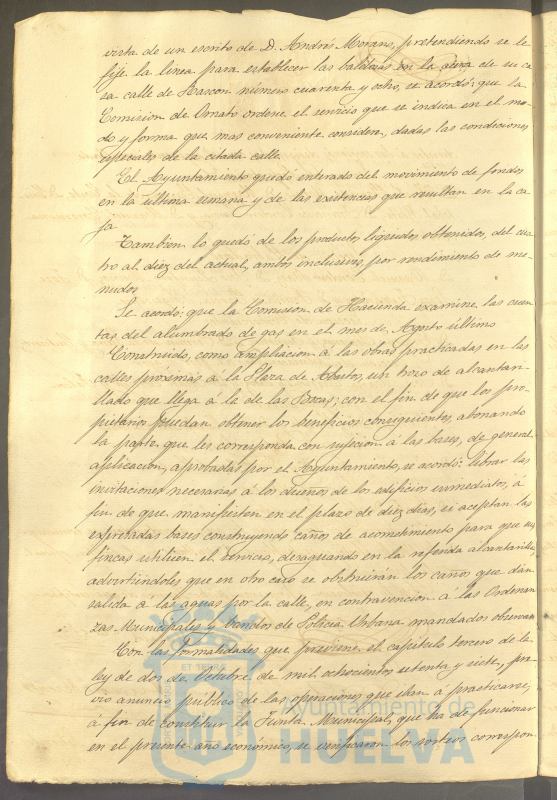 vista de un escrito de D. Andrés Morano, pretendiendo se le
fije la linea para establecer las baldosas en la acera de su ca
sa calle de Rascon número cuarenta y ocho, se acordó: que la
Comision de Ornato ordene el servicio que se indica en el mo-
do y forma que mas conveniente considere, dadas las condiciones
especiales de la citada calle.
El Ayuntamiento quedó enterado del movimiento de fondos
en la última semana y de las existencias que resultan en la ca
ja
Tambien lo quedó de los productos liquidos obtenidos, del cua
tro al diez del actual, ambos inclusives, por rendimiento de me-
nudos
Se acordó: que la Comision de Hacienda examine las cuen
tas del alumbrado de gas en el mes de Agosto último
Construido, como ampliacion á las obras practicadas en las
calles próximas á la Plaza de Abastos, un trozo de alcantari-
llado que llega á la de las Bocas; con el fin de que los pro-
pietarios puedan obtener los beneficios consiguientes, abonando
la parte que les corresponda con sujecion á las bases, de general
aplicacion, aprobadas por el Ayuntamiento, se acordó: librar las
invitaciones necesarias á los dueños de los edificios inmediatos, á
fin de que manifiesten en el plazo de diez dias, si aceptan las
expresadas bases construyendo caños de acometimiento para que sus
fincas utilicen el servicio, desaguando en la referida alcantarilla,
advirtiéndoles que en otro caso se obstruirán los caños que dan
salida á las aguas por la calle, en contravencion á las Ordenan
zas Municipales y bandos de Policia Urbana mandados observar
Con las formalidades que previene el capítulo tercero de la
ley de dos de Octubre de mil ochocientos setenta y siete, pre-
vio anuncio público de las operaciones que iban á practicarse,
á fin de constituir la Junta Municipal, que ha de funcionar
en el presente año económico, se verificaron los sorteos correspon-
Ayuntamiento de
HUELVA